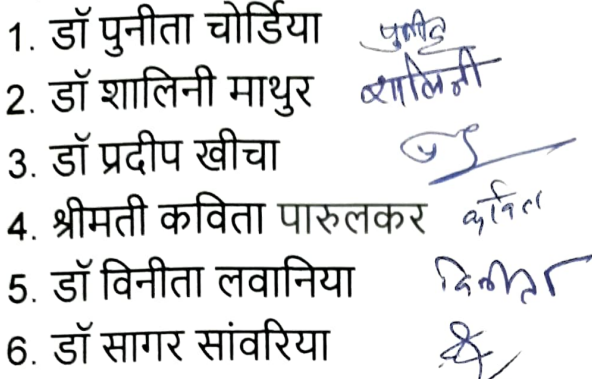 1. डॉ पुनीता चोर्डिया पुनीता
2. डॉ शालिनी माथुर शालिनी
3. डॉ प्रदीप खीचा
4. श्रीमती कविता पारुलकर कविता
5. डॉ विनीता लवानिया विनीता
6. डॉ सागर सांवरिया